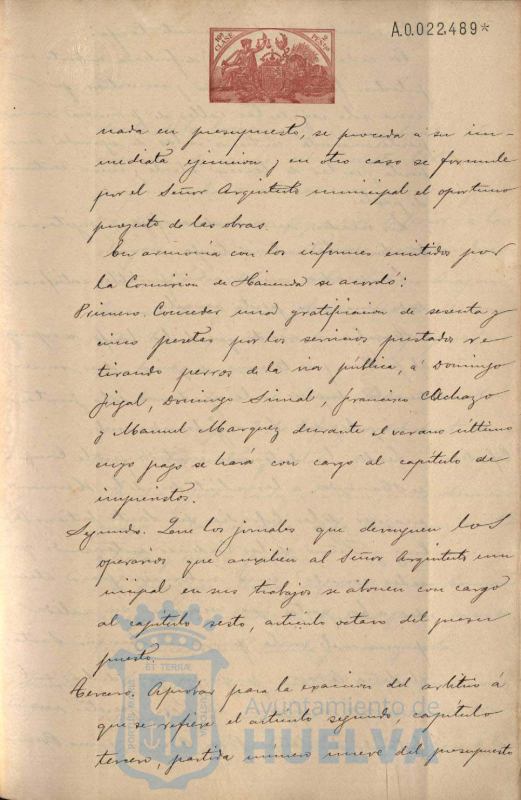 10ª CLASE
2 PESETAS
A.0.022.489*
nada en presupuesto, se proceda a su in-
mediata ejecucion y en otro caso se formule
por el Señor Arquitecto municipal el oportuno
proyecto de las obras.
En armonia con los informes emitidos por
la Comision de Hacienda se acordó:
Primero. Conceder una gratificacion de sesenta y
cinco pesetas por los servicios prestados re
tirando perros de la via pública, á Domingo
Domingo Francisco
y Manuel Marquez durante el verano último
cuyo pago se hará con cargo al capítulo de
imprevistos.
Segundo. Que los jornales que devenguen los
operarios que auxilien al Señor Arquitecto mu
nicipal en sus trabajos se abonen con cargo
al capítulo sesto, artículo octavo del presu
puesto.
Tercero. Aprobar para la exaccion del arbitrio á
que se refiere el artículo segundo, capítulo
tercero, partida número nueve del presupuesto
ET TERRÆ
Ayuntamiento de
HUELVA